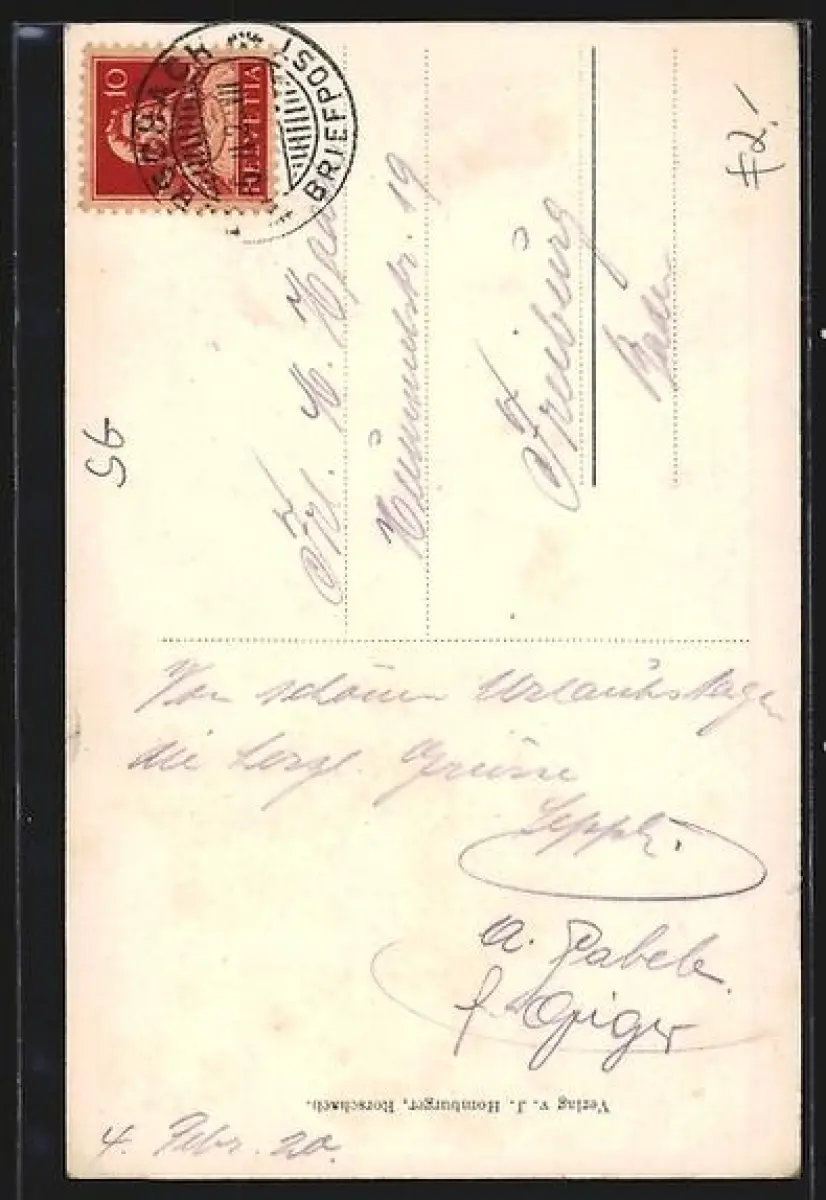 10
HELVETIA
RORSCHACH
BRIEFPOST
F2.
SG
Frl. M.
Hummelstr. 19
Freiburg
Baden
Von schönen Urlaubstagen
die herzl. Grüsse
Seppli.
A.
F. Geiger
Verlag v. J. Homburger, Rorschach.
4. Febr. 20.